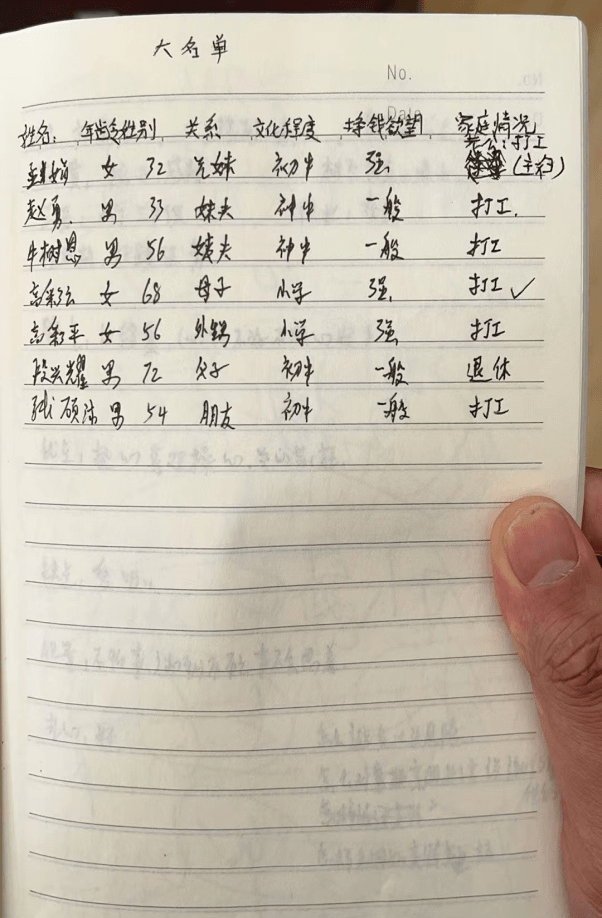 大名单
No.
Date
姓名: 年龄 性别, 关系, 文化程度, 挣钱欲望, 家庭情况
老公:打工
女 32 兄妹 初中 强 (主妇)
赵勇. 男 33 妹夫 初中 一般 打工.
牛树恩 男 56 姨夫 初中 一般 打工
高彩云 女 68 母子 小学 强. 打工 ✓
高彩平 女 56 小学 强 打工
段兴耀 男 72 父子 初中 一般 退休
张硕沛 男 54 朋友 初中 一般 打工